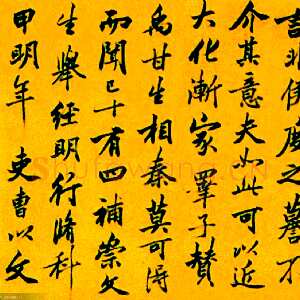 非偉度之不
介其意夫如此可以近
大化漸家鞏子贊
甘生相秦莫可得
而聞已十有四補崇文
生舉經明行脩科
甲明年吏曹以文